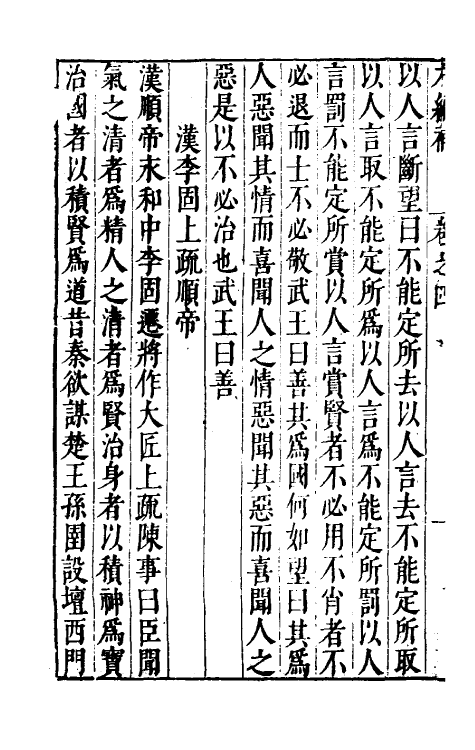 卷之四
以人言斷望曰不能定所去以人言去不能定所取
以人言取不能定所爲以人言爲不能定所罰以人
言罰不能定所賞以人言賞賢者不必用不肖者不
必退而士不必敬武王曰善其爲國何如望曰其爲
人惡聞其情而喜聞人之情惡聞其惡而喜聞人之
惡是以不必治也武王曰善
漢李固上疏順帝
漢順帝末和中李固遷將作大匠上疏陳事曰臣聞
氣之清者爲精人之清者爲賢治身者以積神爲寶
治國者以積賢爲道昔秦欲謀楚王孫圉設壇西門